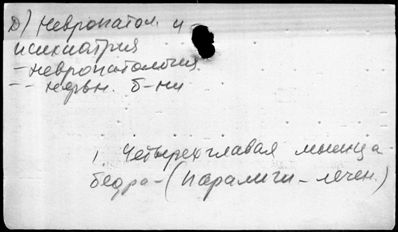 D) Невропатол. и
психиатрия
- невропатология.
-- нервн. б-ни
1. Четырехглавая мышца
бедра - (параличи - лечен.)